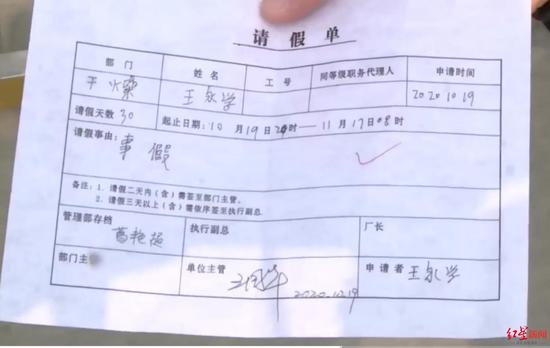 请假单
部门 姓名 工号 同等级职务代理人 申请时间
王永学 2020.10.19
请假天数 30 起止日期:10月19日20时——11月17日08时
请假事由:
事假
备注:1. 请假二天内(含)需签至部门主管。
2. 请假三天以上(含)需依序签至执行副总。
管理部存档 执行副总 厂长
葛艳超
部门主 单位主管 申请者 王永学
2020.10.19
红星新闻